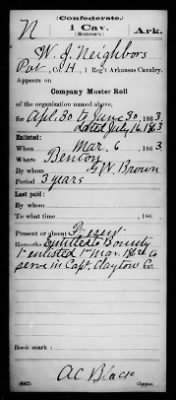 (Confederate.)
N 1 Cav. Ark.
(Monroe's.)
W. J. Neighbors
Pvt, Co. H, 1 Reg't Arkansas Cavalry.
Appears on
Company Muster Roll
of the organization named above,
for Apl. 30 to June 30, 1863
dated July 16, 1863
Enlisted:
When Mar. 6, 1863
Where Benton
By whom G W. Brown
Period 3 years
Last paid:
By whom
To what time , 186 .
Present or absent Present
Remarks: Entitled to Bounty
enlisted 1st Mar. 1862 to
serve in Capt. Claytow Co
Book mark:
A C Black
(642) Copyist.